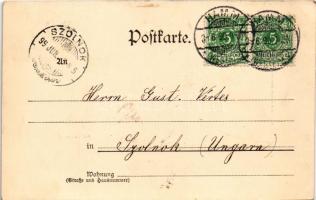 SZOLNOK
Postkarte.
HAMM
5
5
An
Herrn Gust. Vértes
in Szolnok (Ungarn)
Wohnung
(Straße und Hausnummer)